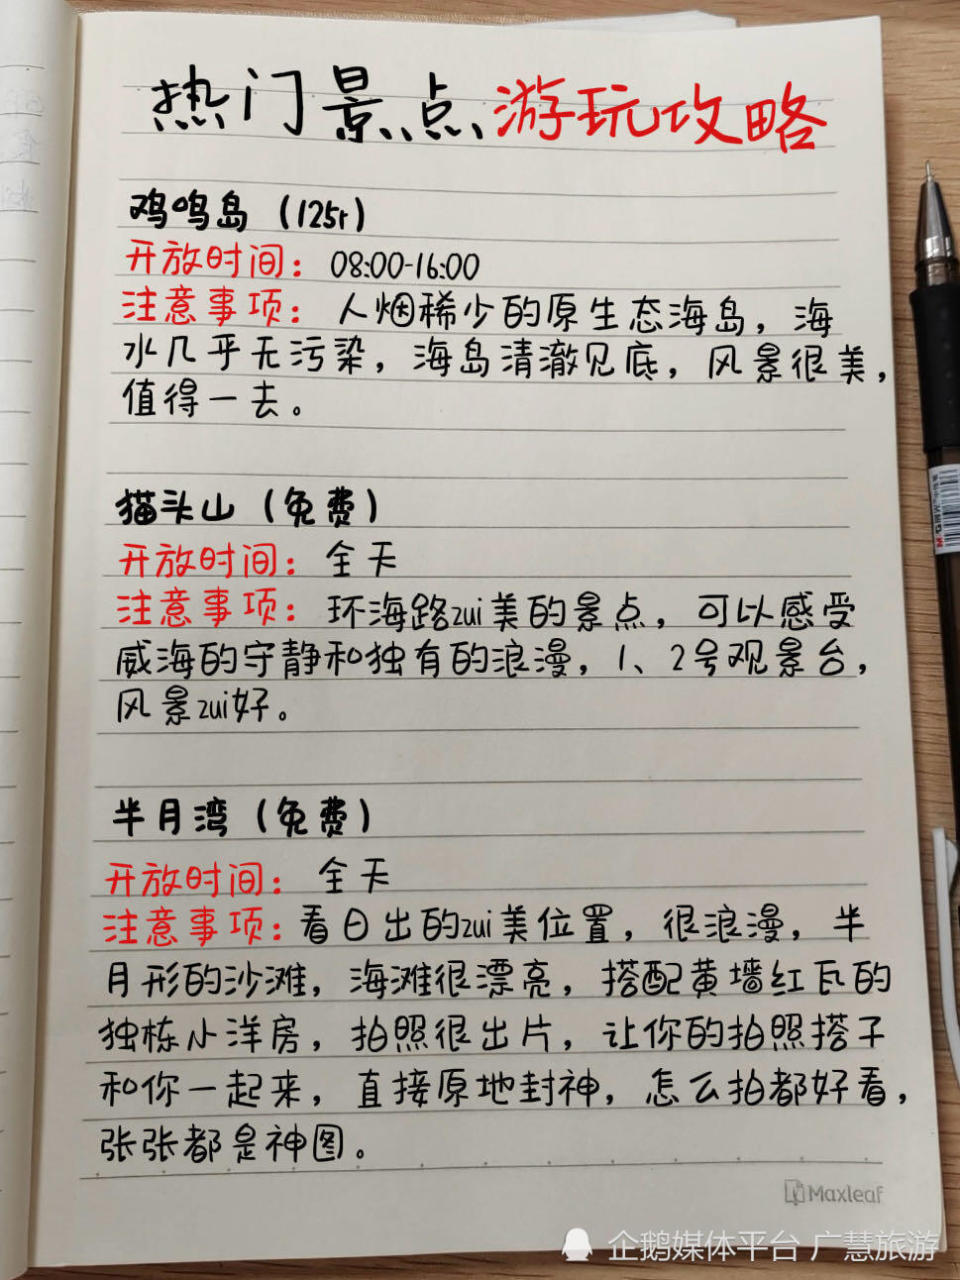 热门景点游玩攻略
鸡鸣岛（125r）
开放时间：08:00-16:00
注意事项：人烟稀少的原生态海岛，海
水几乎无污染，海岛清澈见底，风景很美，
值得一去。
猫头山（免费）
开放时间：全天
注意事项：环海路zui美的景点，可以感受
威海的宁静和独有的浪漫，1、2号观景台，
风景zui好。
半月湾（免费）
开放时间：全天
注意事项：看日出的zui美位置，很浪漫，半
月形的沙滩，海滩很漂亮，搭配黄墙红瓦的
独栋小洋房，拍照很出片，让你的拍照搭子
和你一起来，直接原地封神，怎么拍都好看，
张张都是神图。
Maxleaf
企鹅媒体平台 广慧旅游